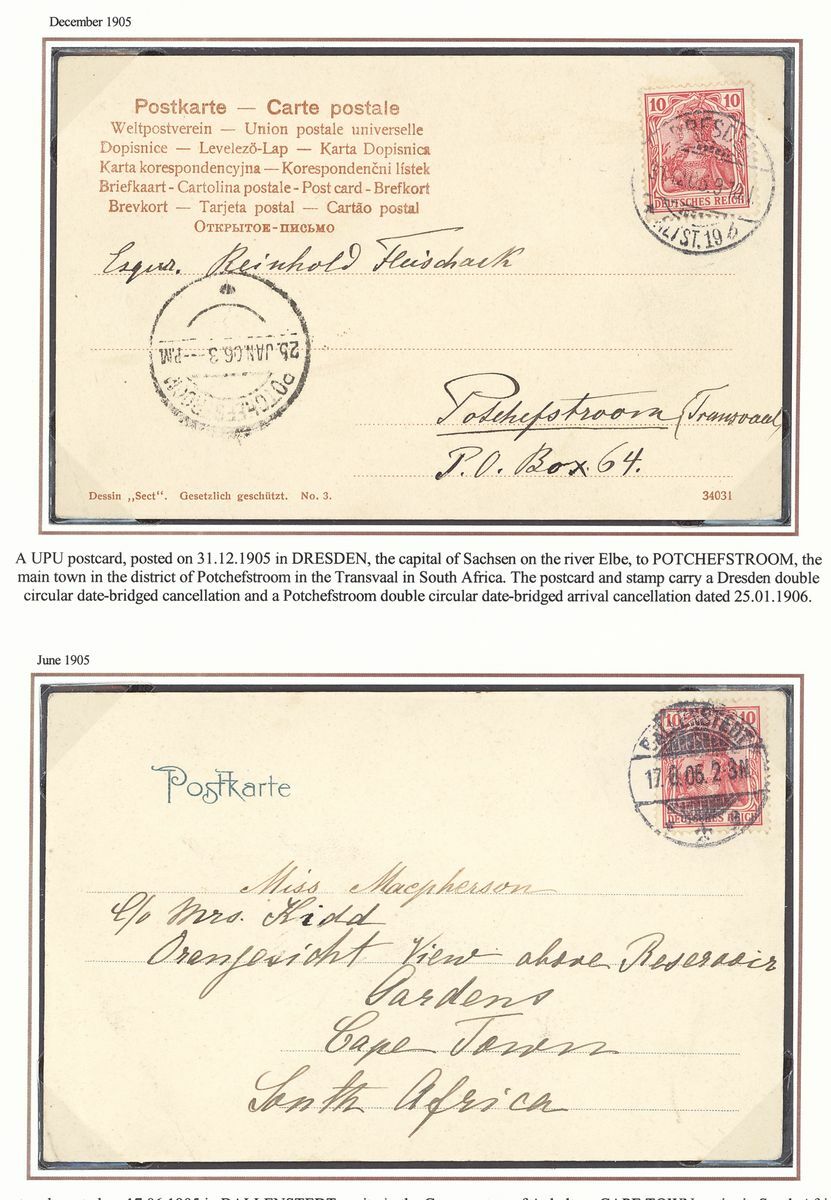 December 1905
Postkarte — Carte postale
Weltpostverein — Union postale universelle
Dopisnice — Levelező-Lap — Karta Dopisnica
Karta korespondencyjna — Korespondenčni lístek
Briefkaart - Cartolina postale - Post card - Brefkort
Brevkort — Tarjeta postal — Cartão postal
Открытое-письмо
10 10
DEUTSCHES REICH
DRESDEN
ST. 19 b
Esqur. Reinhold Fleischack
25. JAN. 06. 3 - P.M
POTCHEFSTROOM
Potchefstroom (Transvaal)
P.O. Box 64.
Dessin „Sect“. Gesetzlich geschützt. No. 3.
34031
A UPU postcard, posted on 31.12.1905 in DRESDEN, the capital of Sachsen on the river Elbe, to POTCHEFSTROOM, the
main town in the district of Potchefstroom in the Transvaal in South Africa. The postcard and stamp carry a Dresden double
circular date-bridged cancellation and a Potchefstroom double circular date-bridged arrival cancellation dated 25.01.1906.
June 1905
10 10
BALLENSTEDT
17.6.05. 2-3N.
DEUTSCHES REICH
Postkarte
Miss Macpherson
c/o Mrs. Kidd
Orangesicht View above Reservoir
Gardens
Cape Town
South Africa